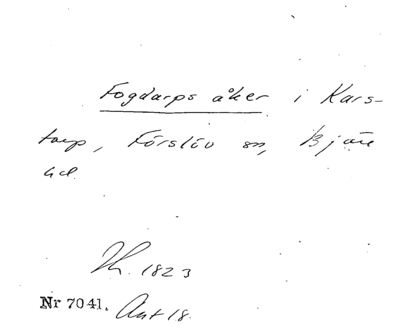 Fogdarps åker i Kars-
torp, Förslöv sn, Bjäre
hd.
Th. 1823
Nr 7041. Akt 18.